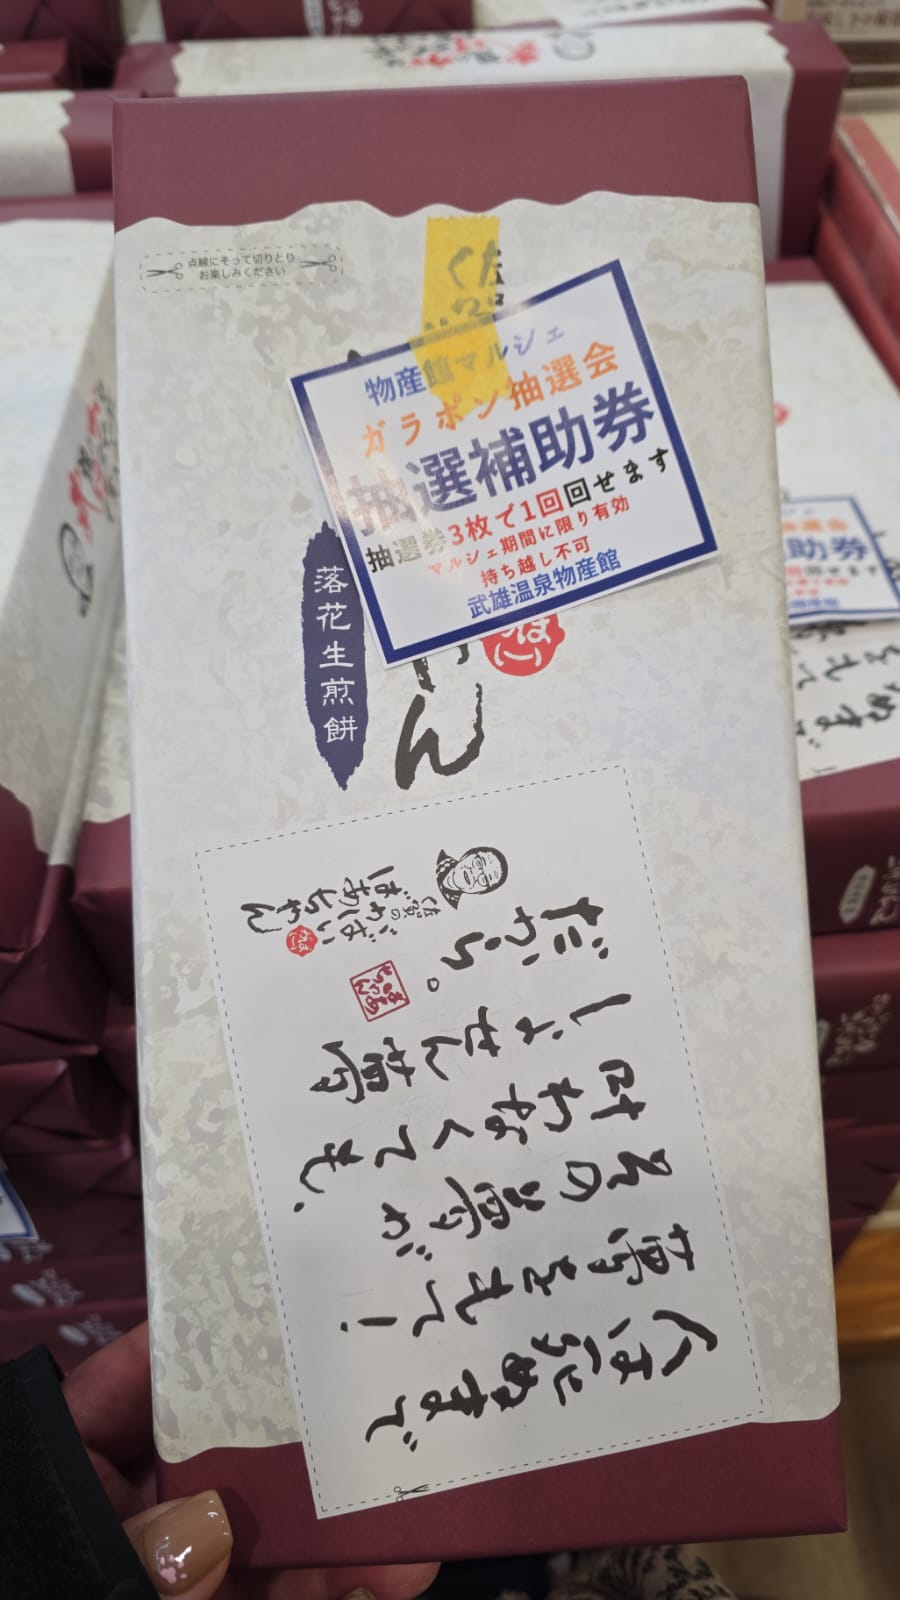 点線にそって切りとり
お楽しみください
佐賀
物産館マルシェ
ガラポン抽選会
抽選補助券
抽選券3枚で1回回せます
マルシェ期間に限り有効
持ち越し不可
武雄温泉物産館
落花生煎餅
ゃん
人は死ぬまで
夢をもて!
その夢が
叶わなくても、
しょせん夢
だから。
佐賀の
がばい
ばあちゃん
抽選会
助券
せます